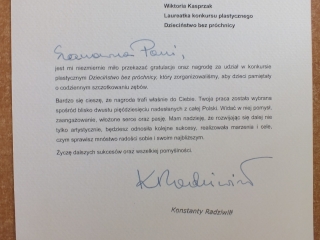 Wiktoria Kasprzak
Laureatka konkursu plastycznego
Dzieciństwo bez próchnicy
Szanowna Pani,
jest mi niezmiernie miło przekazać gratulacje oraz nagrodę za udział w konkursie
plastycznym Dzieciństwo bez próchnicy, który zorganizowaliśmy, aby dzieci pamiętały
o codziennym szczotkowaniu zębów.
Bardzo się cieszę, że nagroda trafi właśnie do Ciebie. Twoja praca została wybrana
spośród blisko dwustu pięćdziesięciu nadesłanych z całej Polski. Widać w niej pomysł,
zaangażowanie, włożone serce oraz pasję. Mam nadzieję, że rozwijając się dalej nie
tylko artystycznie, będziesz odnosiła kolejne sukcesy, realizowała marzenia i cele,
czym sprawisz mnóstwo radości sobie i swoim najbliższym.
Życzę dalszych sukcesów oraz wszelkiej pomyślności.
K Radziwiłł
Konstanty Radziwiłł